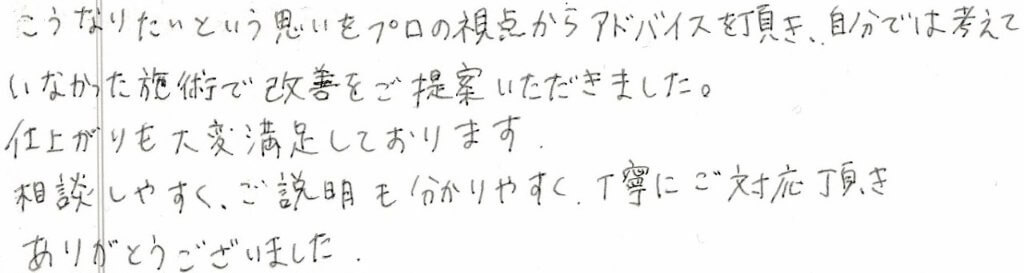 こうなりたいという思いをプロの視点からアドバイスを頂き、自分では考えて
いなかった施術で改善をご提案いただきました。
仕上がりも大変満足しております.
相談しやすく、ご説明も分かりやすく、丁寧にご対応頂き
ありがとうございました.